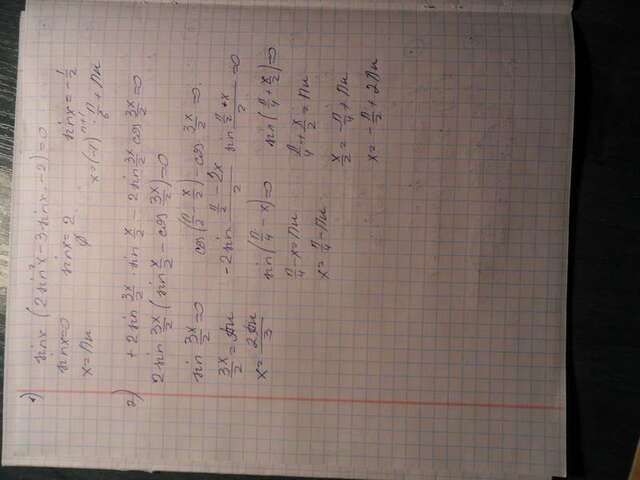 1) sinx (2sin²x - 3sinx - 2) = 0
sinx = 0   sinx = 2   sinx = -1/2
x = πn   ∅   x = (-1)ⁿ⁺¹ π/6 + πn
2) + 2sin 3x/2 · sin x/2 - 2sin 3x/2 cos 3x/2 = 0
2sin 3x/2 (sin x/2 - cos 3x/2) = 0
sin 3x/2 = 0   cos(π/2 - x/2) - cos 3x/2 = 0
3x/2 = πn   -2sin (π/2 - 2x)/2 sin (π/2 + x)/2 = 0
x = 2πn/3   sin(π/4 - x) = 0   sin(π/4 + x/2) = 0
π/4 - x = πn   π/4 + x/2 = πn
x = π/4 - πn   x/2 = -π/4 + πn
x = -π/2 + 2πn